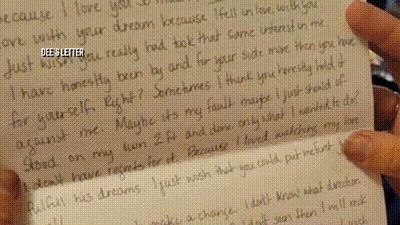 because I love you so
love with your dream because I fell in love with you.
DEE'S LETTER
Just wish you really had took that some interest in me.
I have honestly been by and for your side more then you have
for yourself. Right? Sometimes I think you honestly hold it
against me. Maybe it's my fault maybe I just should of
stood on my own 2 ft and done only what I wanted to do?
I don't have regrets for it. Because I loved watching my love
fulfull his dreams. I just wish that you could put me first
make a change. I don't know what direction
soon then I will